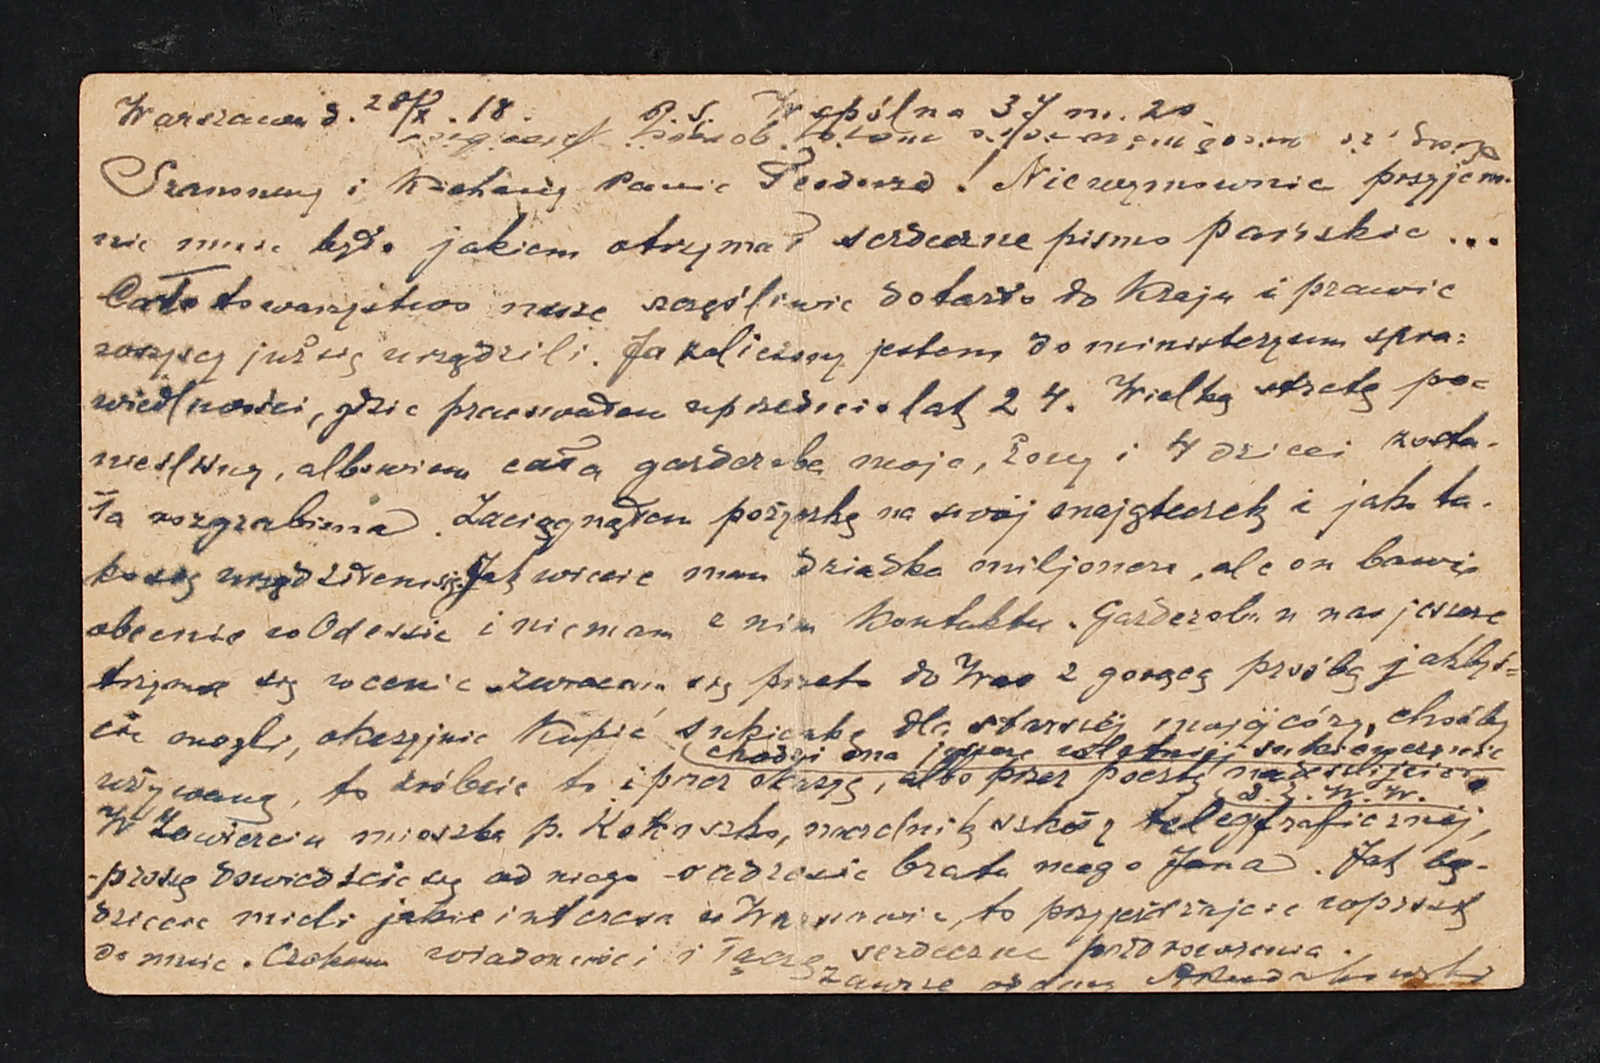 Warszawa d. 28/X. 18. P. S. Wspólna 37 m. 20
Szanowny i Kochany Panie Teodorze! Niewymownie przyjem-
nie mnie było jakiem otrzymał serdeczne pismo pańskie...
Całe towarzystwo nasze szczęśliwie dotarło do Kraju i prawie
wszyscy już się urządzili. Ja zaliczony jestem do ministeryum spra=
wiedliwości, gdzie pracowałem uprzednio lat 24. Wielką stratę po=
nieśliśmy, albowiem cała garderoba moja, żony i 4 dzieci zosta-
ła rozgrabiona. Zaciągnąłem pożyczkę na swój mająteczek i jako ta-
ko się urządziłem. Jak wiecie mam dziadka miljonera, ale on bawi
obecnie w Odessie i nie mam z nim kontaktu. Garderoba u nas jeszcze
trzyma się w cenie zwracam się przeto do Was z gorącą prośbą jakbyś=
cie mogli, okazyjnie kupić sukienkę dla starszej mojej córy, choćby
(chodzi ona jeszcze w letniej sukience
używaną, to zróbcie to i przez okazyę, albo przez pocztę
W Zawierciu mieszka p. Kokoszko, naczelnik szkoły telegraficznej,
-proszę dowiedzcie się od niego o adresie brata mego Jana. Jak bę-
dziecie mieli jakie interesa w Warszawie, to przyjeżdżajcie wprost
do mnie. Czekam wiadomości i łączę serdeczne pozdrowienia.
zawsze oddany